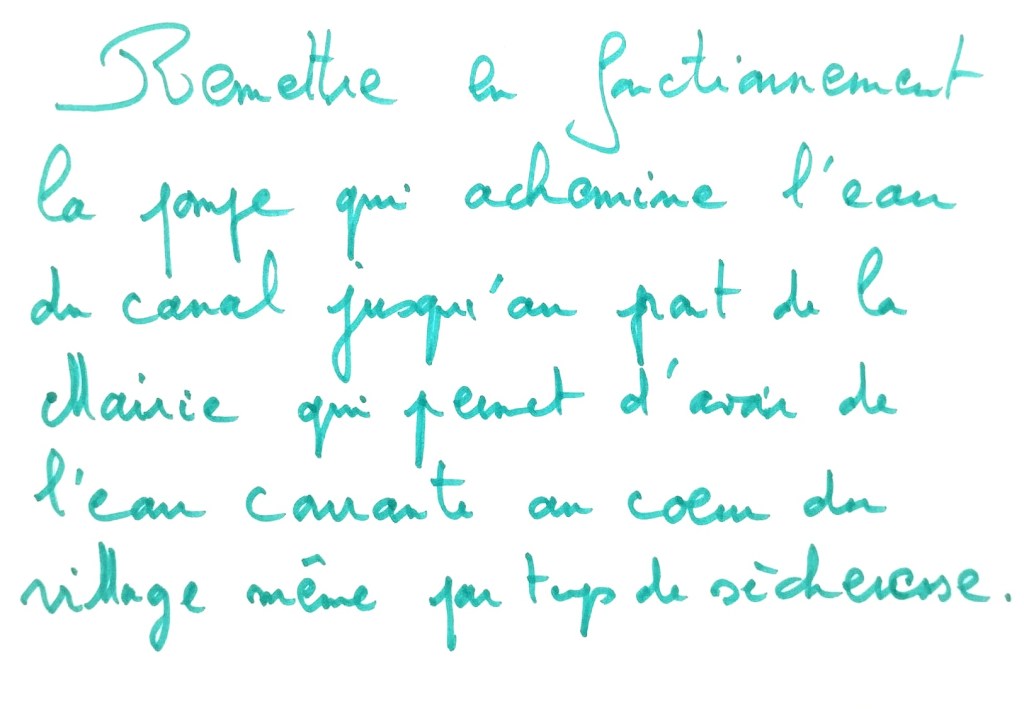 Remettre en fonctionnement
la pompe qui achemine l'eau
du canal jusqu'au pont de la
Mairie qui permet d'avoir de
l'eau courante au coeur du
village même par temps de sècheresse.